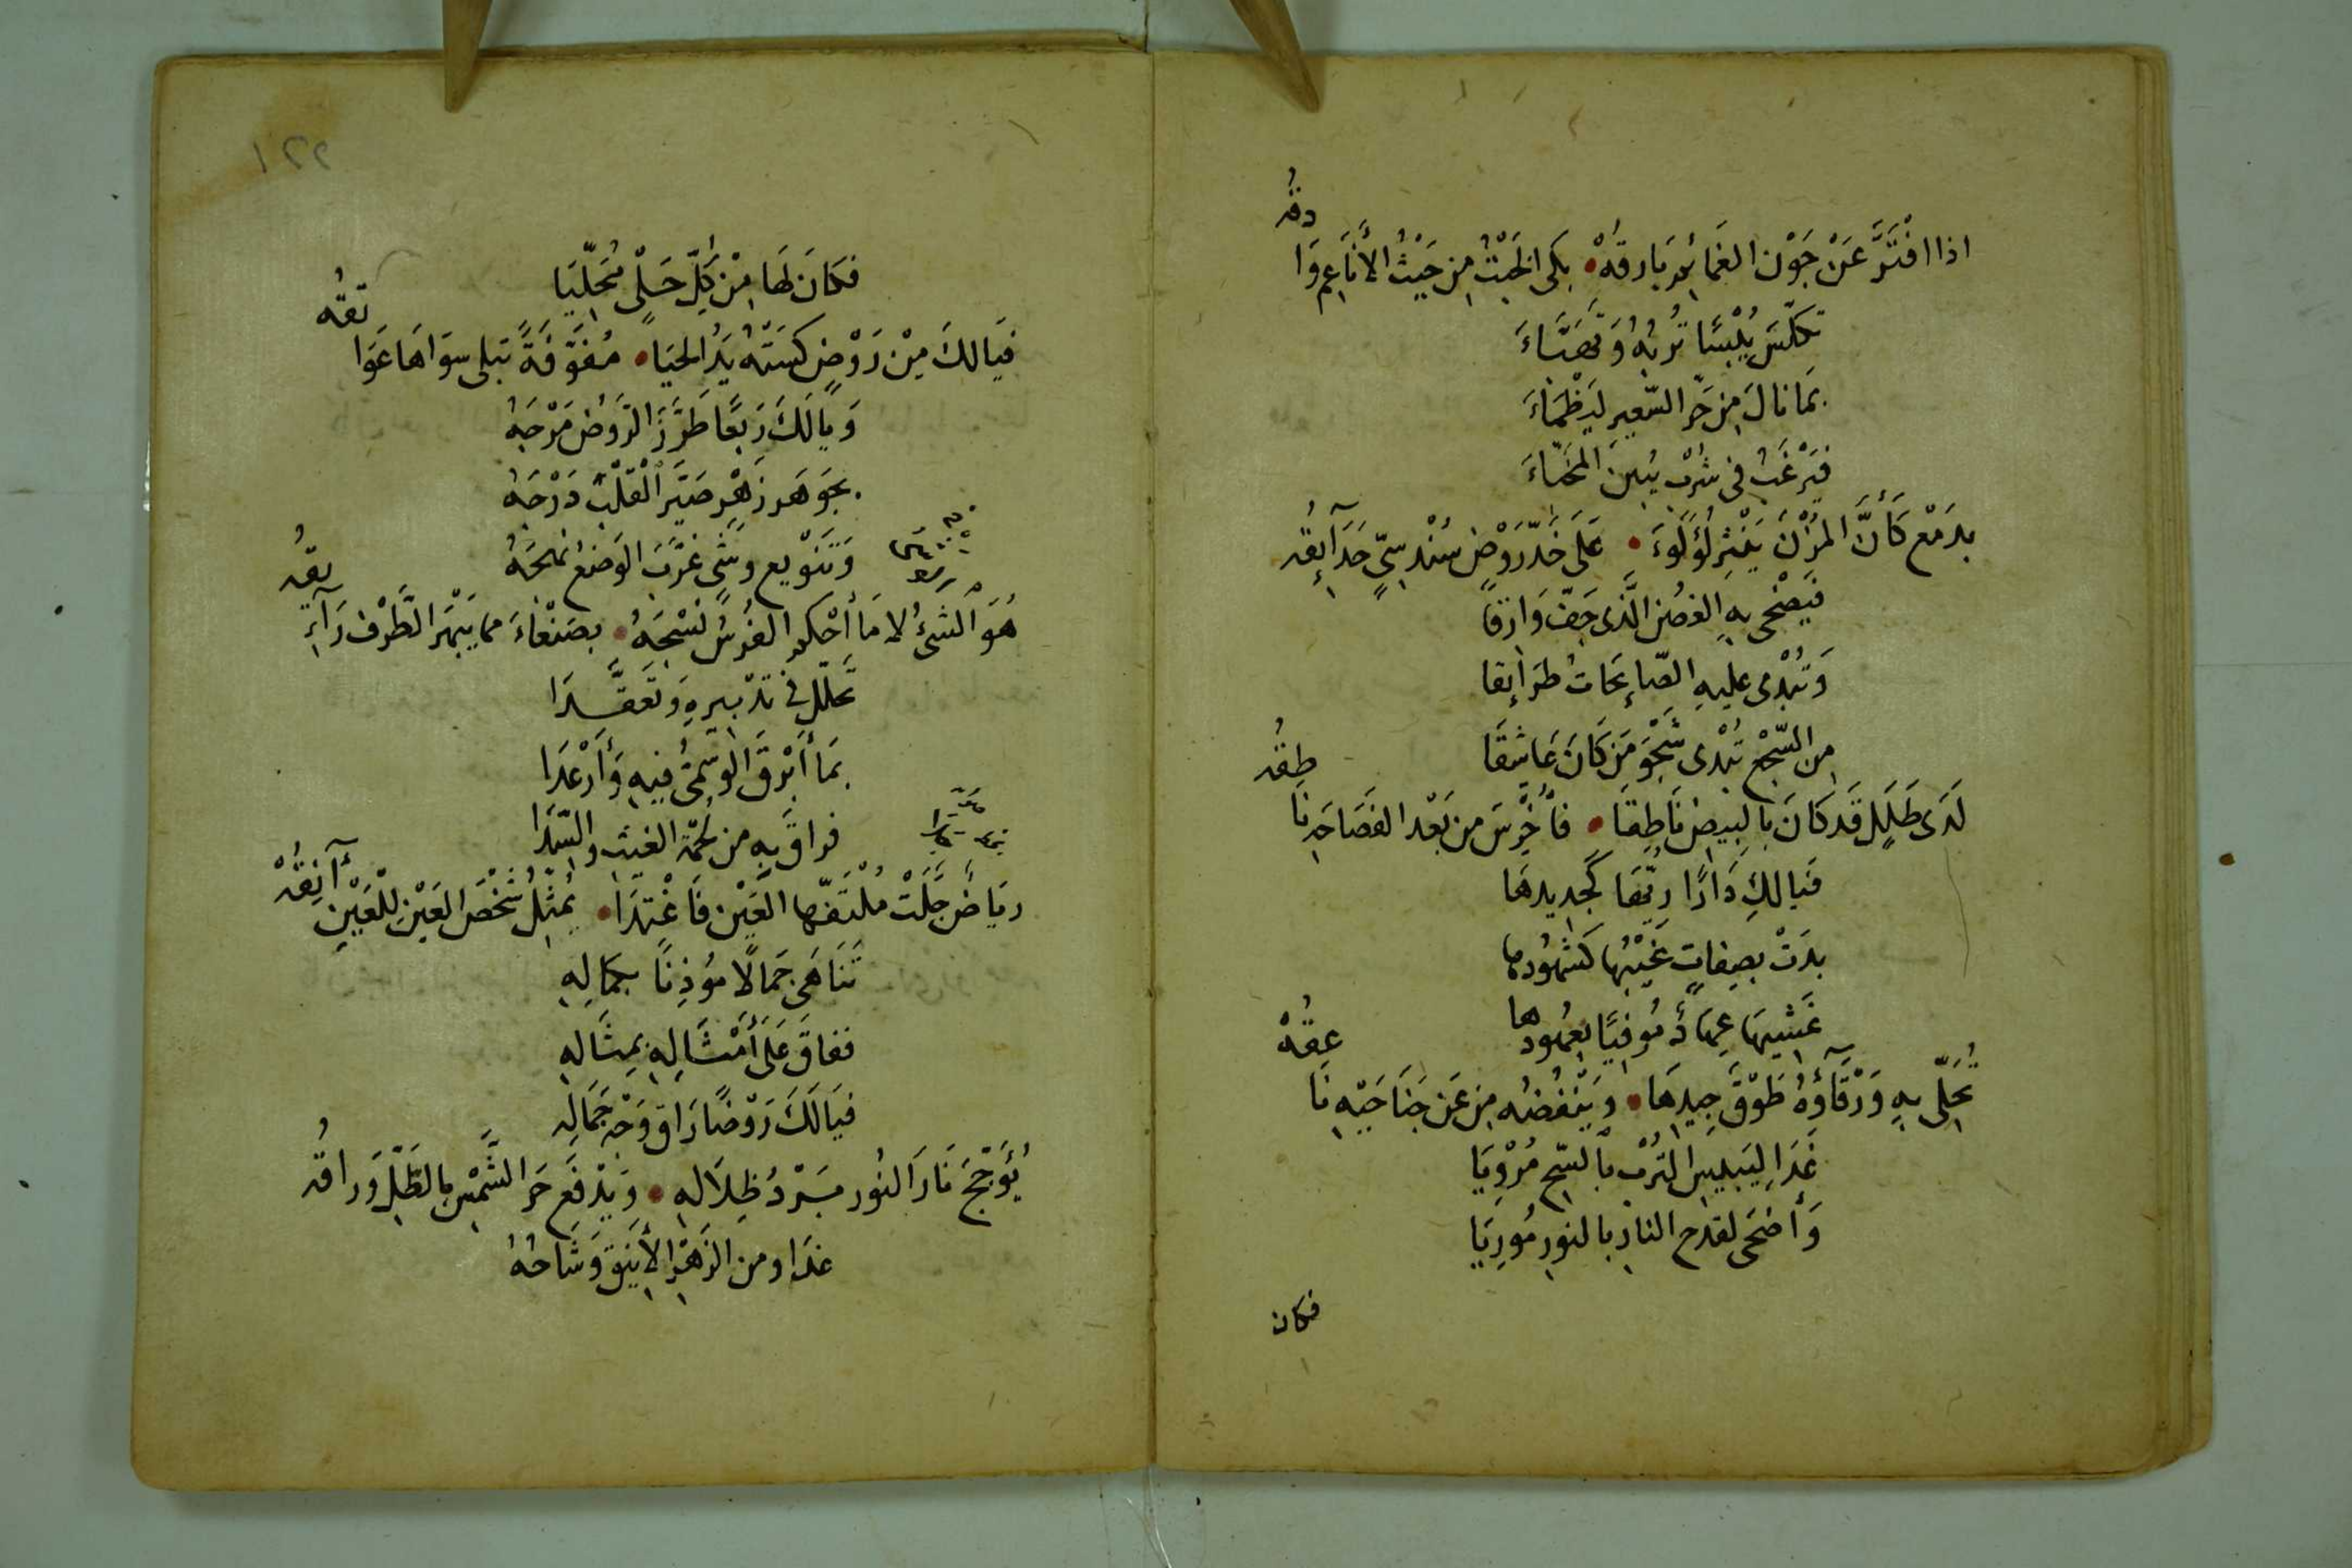 اذا افْتَرَّ عَنْ جَوْن الغَمائمِ بَارقهُ • بكى الخَبْتُ مِن حَيْثُ الأنَاعِم وَادقهُ
تكلّسَ يُلْبسًا تُرْبهُ وَتَهَيَّاءَ
بمَا نالَ مِن حَرّ السّعيرِ ليَظْمَاءَ
فيَرْغَبُ فى شرْب يُبينَ
بدَمْع كَأَنَّ المزْنَ يَنْثِر لُؤلُوءَ • عَلَى خَدّ رَوْضٍ سُنْدسىٍّ حَدَآئِقُه
فيَضْحى بِهِ الغصْن الَّذى جَفّ وَارقًا
وَتُبْدى عليهِ الصّائحَاتُ طَرَائِقا
مِن السّجْع تُبْدى شَجْوَ مَن كَانَ عَاشِقَا
لَدَى طَلَلٍ قَد كَانَ بالبيضِ نَاطِقا • فأُخْرِسَ من بَعْد الفَصَاحَةِ نَاطِقُه
فَيالكِ دَارًا رِثّها كَجديدهَا
بدَتْ بصِفاتٍ غَيْبُها كَشهُودها
غَشيهَا عِهَادٌ مُوفيًا بعُهُودها
تُحَلّى بِهِ وَرْقَآؤهُ طَوْقَ جِيدِهَا • وَيَنْفُضُه مِن عَن جَنَاحَيْهِ نَاعِقُهْ
غَدَا ليَبيسِ التُرْب بالسّحِ مُرْوِيَا
وَأَضحَى لقدح النار بالنورِ مُورِيَا
فكان
١٢٢
فكَانَ لهَا مِنْ كلِّ حَلْىٍ مُحَلّيَا
فَيَالكَ مِنْ رَوْضٍ كسَتْهُ يَدُ الحيَا • مُفَوَّفَةً تبلى سوَاهَا عَوَاتقُه
وَيا لَكَ رَبعًا طَرَّزَ الرَّوضُ مَرْجَهُ
بجَوهَر زَهْرٍ صَيَّرَ القَلْبَ دَرْجَهُ
وَتَنْويع وشىٍ غرَّبَ الوَضعُ نهجَهُ
هُوَ الشئُ لا مَا أحْكمَ الفُرسُ نسْجَهُ • بصَنْعَاءَ مما يَبْهَر الطَّرْف رَآئِقُه
تحلّل فى تدْبيرهِ وَتَعَقَّدَا
بمَا أبْرقَ الوَسْمىُّ فيهِ وَأرْعَدَا
فراقَ بهِ من لُحْمة الغيث والسّدَا
ريَاضٌ جَلَتْ مُلْتَفّها العَيْن فَاغْتدَا • يُمثّلُ شخْصَ العَيْنِ لِلْعَيْنِ آنِقُهْ
تَنَاهَى جَمالًا مُؤذِنًا بكمَالِهِ
ففاقَ عَلَى أَمْثَالِهِ بمِثَالهِ
فيَا لَكَ رَوْضًا رَاق وَجْه جَمَالِه
يُؤَجّجُ نَارَ النُور بَرْدُ ظِلَالهِ • وَيَدْفَع حَرَ الشَّمْسِ بالظِّلِّ وَراقُه
غدَا ومن الزَهْرِ الأَنيَق وَشَاحُهُ